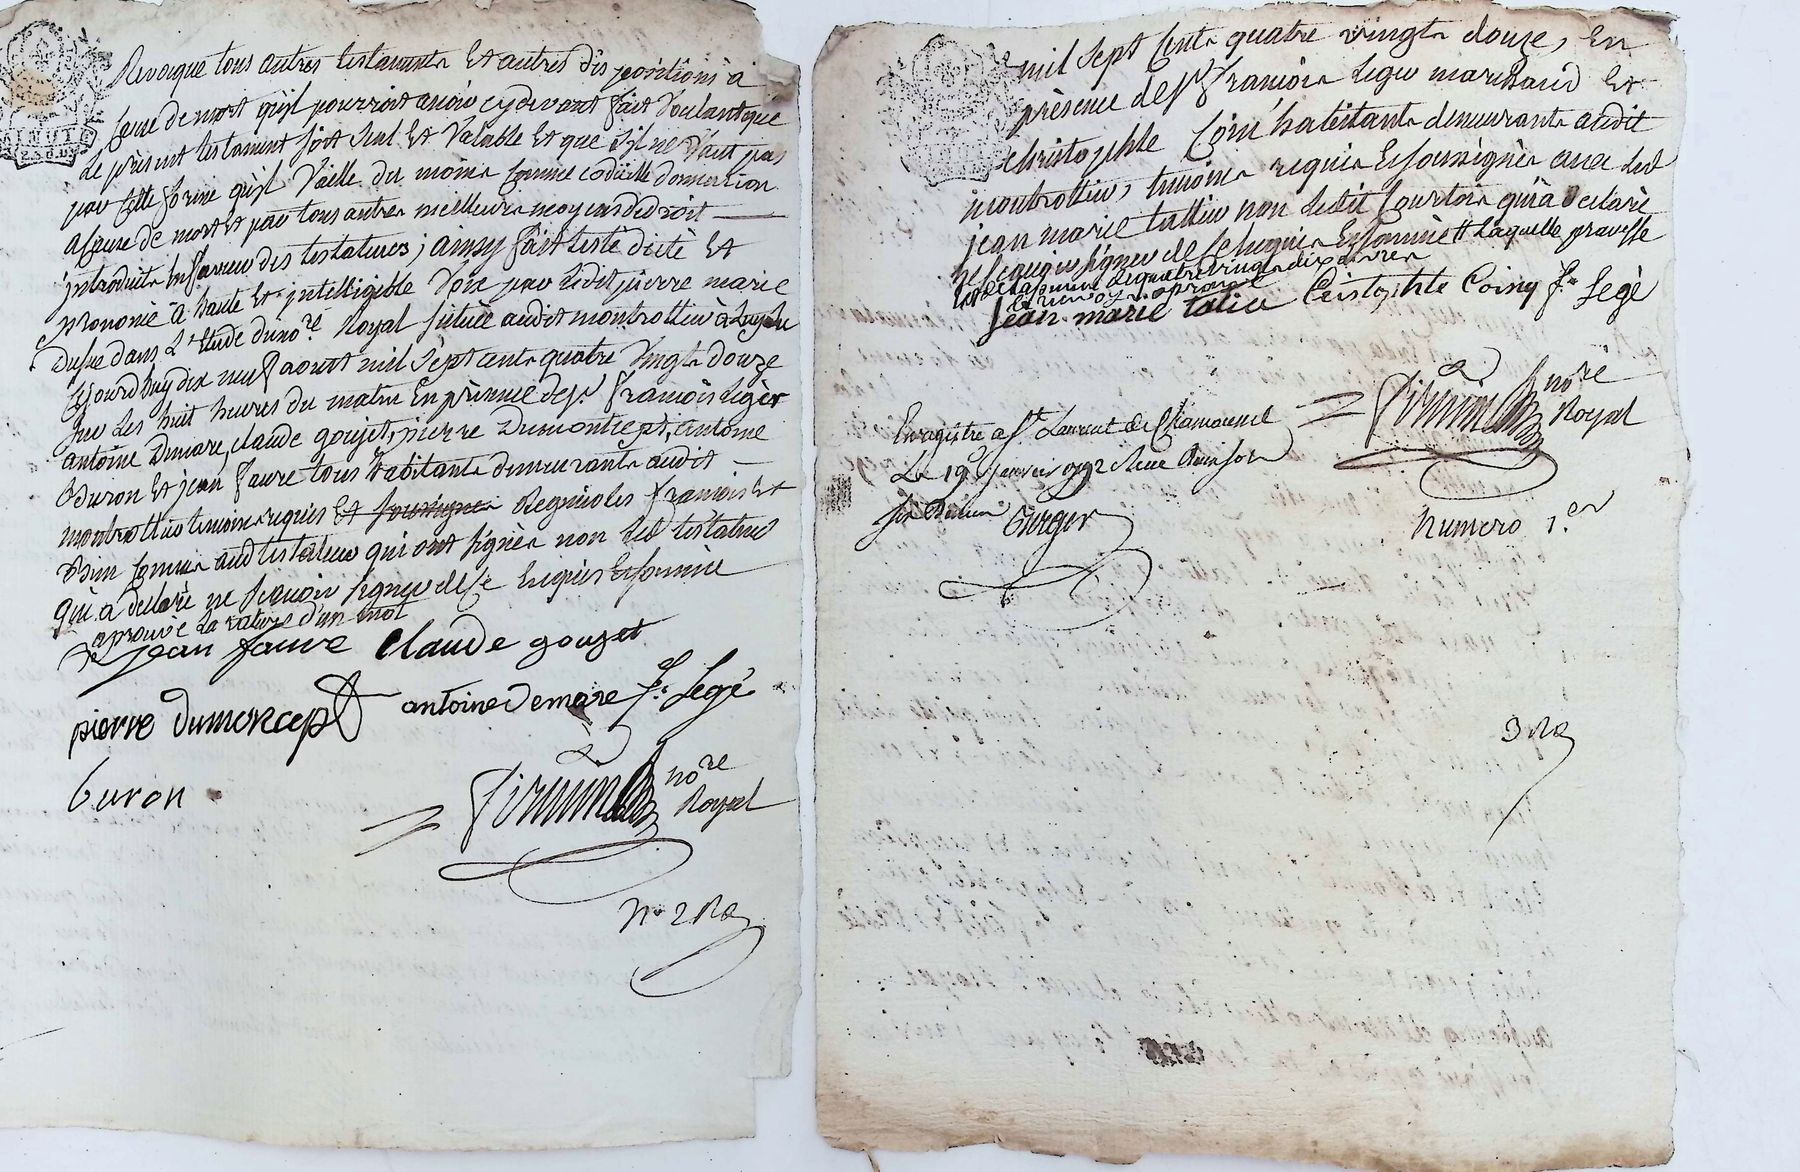 Revoque tous autres testaments Et autres dispositions à
Cause de mort qu'jl pourroit avoir cydevant fait Voulant que
Le présent testament soit seul Et Valable Et que s'jl ne Vaut pas
par cette forme qu'jl Vaille du moins Comme codicille donnation
acause de mort Et par tous autres meilleurs moyens de droit
jntroduits En faveur des testateurs; ainsy fait testé dicté Et
prononcé à haute Et jntelligible Voix par Ledit pierre marie
dans L'Etude du nore. Royal situé audit montrottier
Cejourdhuy dix neuf aout mil sept cents quatre Vingts douze
sur Les huit heures du matin En présence de sr. françois Légér
antoine Dumare, claude goujet, pierre Dumontcept, antoine
Buron Et jean faure tous habitants demeurants audit
montrottier temoins requis Et soussignés
aud testateur qui ont signés non Led testateur
qui a declaré ne scavoir signer de ce Enquis Et sommé
aprouvé La rature d'un mot
jean faure claude gouget
pierre dumoncept antoine Demare fs. Legé
buron
nore
Royal
No 2 Ro
MINUTE
mil sept Cents quatre vingts douze, En
présence de sr françois Leger marchand Et
christophle Coin habitants demeurants audit
montrottier, temoins requis Et soussignés avec Led
jean marie tallier non Ledit Courtois qui a declaré
ne scavoir signer de ce Enquis Et sommé Laquelle
quatre vingts dix livres
Et renvoy aprouvé
Jean marie talier Cristophle Coiny fs Legé
nore
Royal
Enregistré a St Laurent de Chamousset
Le 19 janvier 1792
Numero 1.er
3 Ro